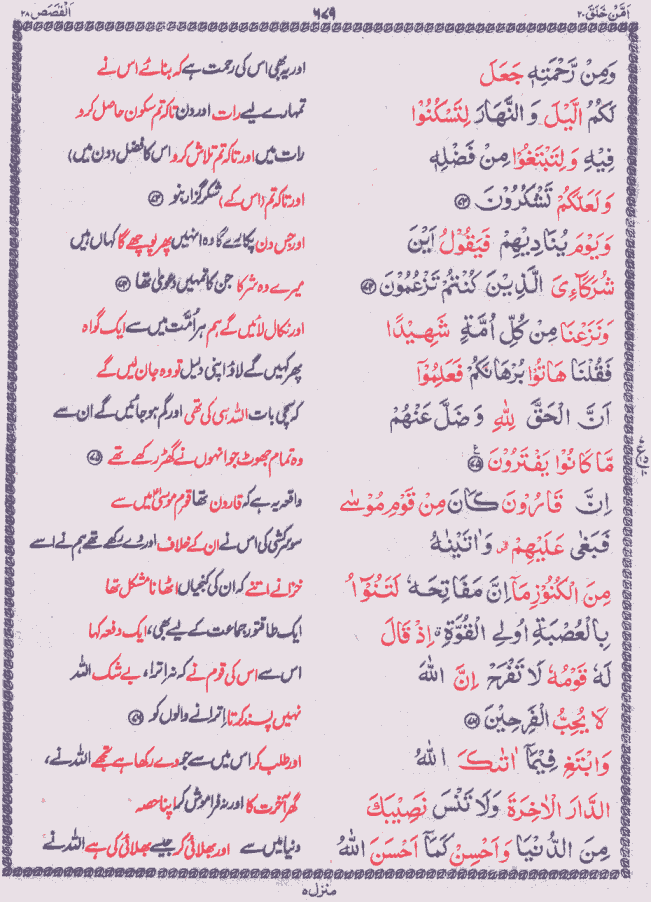 اَمَّنْ خَلَقَ ۲۰ ۶۸۹ اَلْقَصَص ۲۸
وَمِنْ رَّحْمَتِهٖ جَعَلَ اور یہ بھی اس کی رحمت ہے کہ بنائے اس نے
لَكُمُ الَّيْلَ وَالنَّهَارَ لِتَسْكُنُوْا تمہارے لیے رات اور دن تاکہ تم سکون حاصل کرو
فِيْهِ وَلِتَبْتَغُوْا مِنْ فَضْلِهٖ رات میں اور تاکہ تم تلاش کرو اس کا فضل (دن میں)
وَلَعَلَّكُمْ تَشْكُرُوْنَ ﴿۷۳﴾ اور تاکہ تم (اس کے) شکر گزار بنو ﴿۷۳﴾
وَيَوْمَ يُنَادِيْهِمْ فَيَقُوْلُ اَيْنَ اور جس دن پکارے گا وہ انہیں پھر پوچھے گا کہاں ہیں
شُرَكَآءِىَ الَّذِيْنَ كُنْتُمْ تَزْعُمُوْنَ ﴿۷۴﴾ میرے وہ شرکا جن کا تمہیں دعویٰ تھا ﴿۷۴﴾
وَنَزَعْنَا مِنْ كُلِّ اُمَّةٍ شَهِيْدًا اور نکال لائیں گے ہم ہر اُمّت میں سے ایک گواہ
فَقُلْنَا هَاتُوْا بُرْهَانَكُمْ فَعَلِمُوْٓا پھر کہیں گے لاؤ اپنی دلیل تو وہ جان لیں گے
اَنَّ الْحَقَّ لِلّٰهِ وَضَلَّ عَنْهُمْ کہ سچی بات اللہ ہی کی تھی اور گم ہو جائیں گے ان سے
مَّا كَانُوْا يَفْتَرُوْنَ ﴿۷۵﴾ ع وہ تمام جھوٹ جو انہوں نے گھڑ رکھے تھے ﴿۷۵﴾
اِنَّ قَارُوْنَ كَانَ مِنْ قَوْمِ مُوْسٰى واقعہ یہ ہے کہ قارون تھا قومِ موسیٰ میں سے
فَبَغٰى عَلَيْهِمْ وَاٰتَيْنٰهُ سو سرکشی کی اس نے ان کے خلاف اور دے رکھے تھے ہم نے اسے
مِنَ الْكُنُوْزِ مَآ اِنَّ مَفَاتِحَهٗ لَتَنُوْٓاُ خزانے اتنے کہ ان کی کنجیاں اٹھانا مشکل تھا
بِالْعُصْبَةِ اُولِى الْقُوَّةِ اِذْ قَالَ ایک طاقتور جماعت کے لیے بھی، ایک دفعہ کہا
لَهٗ قَوْمُهٗ لَا تَفْرَحْ اِنَّ اللّٰهَ اس سے اس کی قوم نے کہ نہ اِترا، بے شک اللہ
لَا يُحِبُّ الْفَرِحِيْنَ ﴿۷۶﴾ نہیں پسند کرتا اِترانے والوں کو ﴿۷۶﴾
وَابْتَغِ فِيْمَآ اٰتٰىكَ اللّٰهُ اور طلب کر اس میں سے جو دے رکھا ہے تجھے اللہ نے،
الدَّارَ الْاٰخِرَةَ وَلَا تَنْسَ نَصِيْبَكَ گھر آخرت کا اور نہ فراموش کر اپنا حصہ
مِنَ الدُّنْيَا وَاَحْسِنْ كَمَآ اَحْسَنَ اللّٰهُ دنیا میں سے اور بھلائی کر جیسے بھلائی کی ہے اللہ نے
منزل ۵